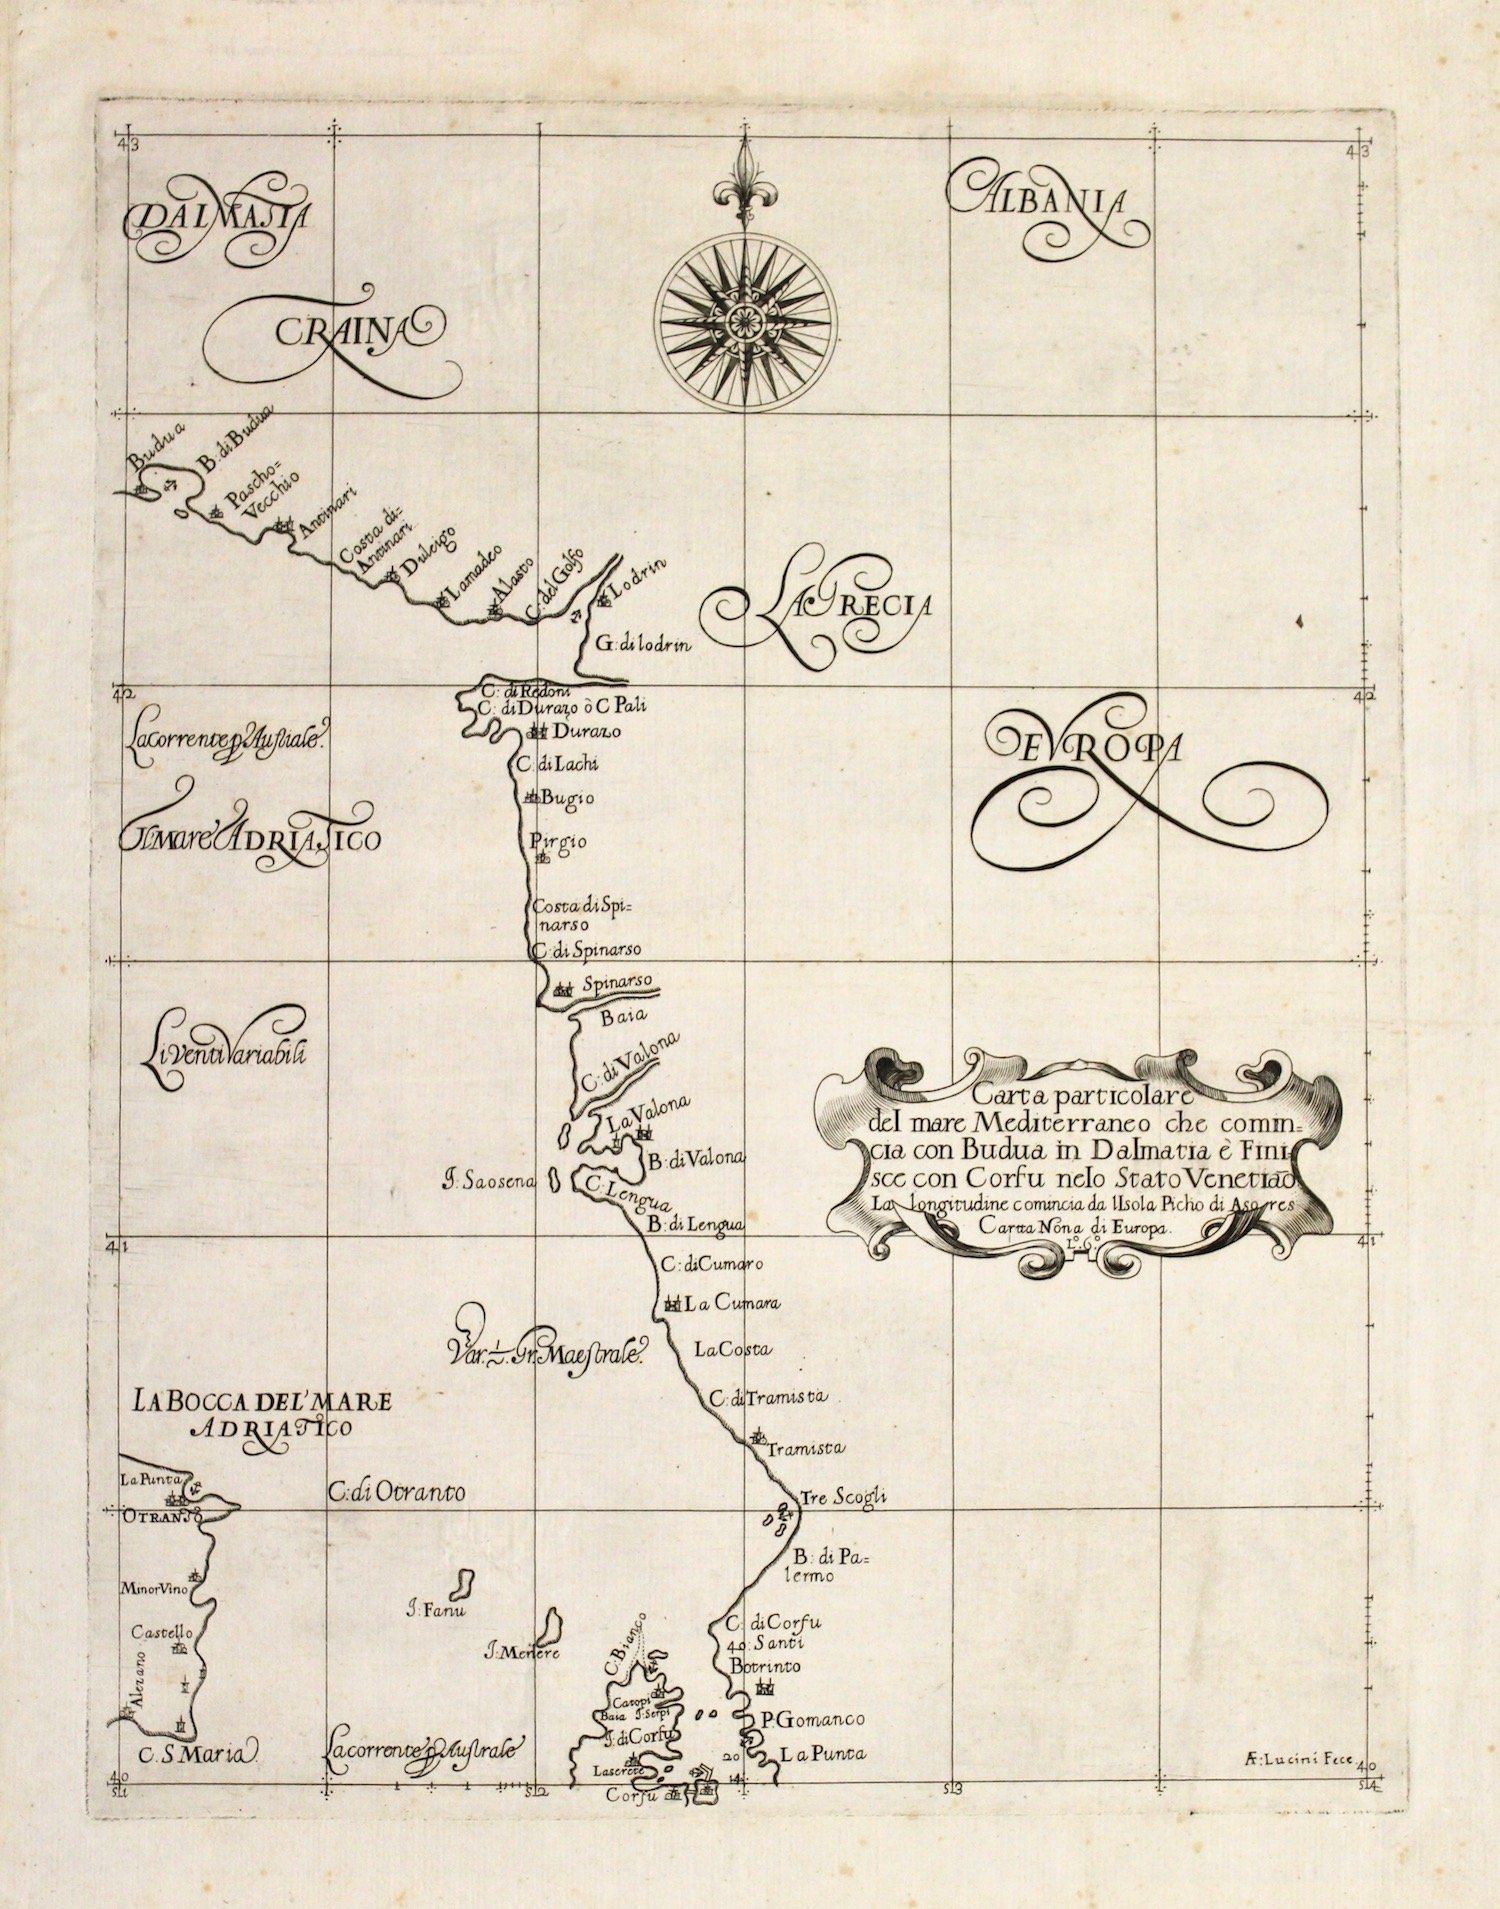 43
43
DALMATIA
ALBANIA
CRAINA
Budua
B: di Budua
Pascho=
Vecchio
Antinari
Costa di=
Antinari
Dulcigo
Lamadeo
Alasto
C: del Golfo
Lodrin
LA GRECIA
G: di lodrin
42
42
C: di Redoni
C: di Durazo ò C Pali
Durazo
La corrente p Australe.
EVROPA
C: di Lachi
Bugio
Il Mare ADRIATICO
Pirgio
Costa di Spi=
narso
C: di Spinarso
Spinarso
Baia
Li venti Variabili
C: di Valona
La Valona
B: di Valona
I: Saosena
C: Lengua
B: di Lengua
Carta particolare
del mare Mediterraneo che comin=
cia con Budua in Dalmatia è Fini
sce con Corfu nelo Stato Venetiāo
La longitudine comincia da l'Isola Picho di Asores
Carta Nona di Europa.
L.º 6.º
41
41
C: di Cumaro
La Cumara
Var. ½. Gr. Maestrale.
La Costa
C: di Tramista
LA BOCCA DEL' MARE
ADRIATICO
Tramista
La Punta
C: di Otranto
Tre Scogli
OTRANTO
B: di Pa=
lermo
Minor Vino
I: Fanu
C: di Corfu
Castello
40: Santi
I: Merlere
C: Bianco
Botrinto
Alezano
Catopi
Baia I: Serpi
P. Gomanco
I: di Corfu
C. S. Maria
La corrente p Australe
20
La Punta
Æ: Lucini Fece
Corfu
14
40
40
511
512
513
514